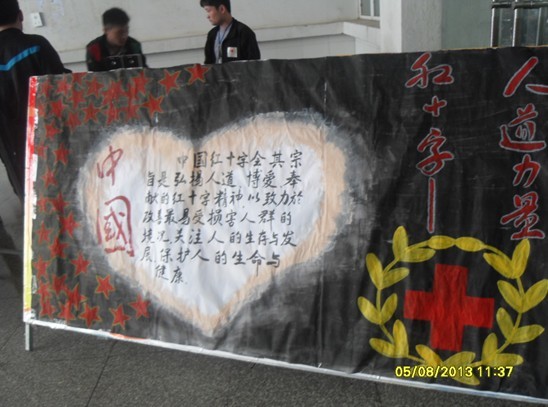 中國
中国红十字会其宗
旨是弘扬人道、博爱、奉
献的红十字精神以致力於
改善最易受损害人群的
境况,关注人的生存与发
展,保护人的生命与
健康
红十字—
人道力量
05/08/2013 11:37